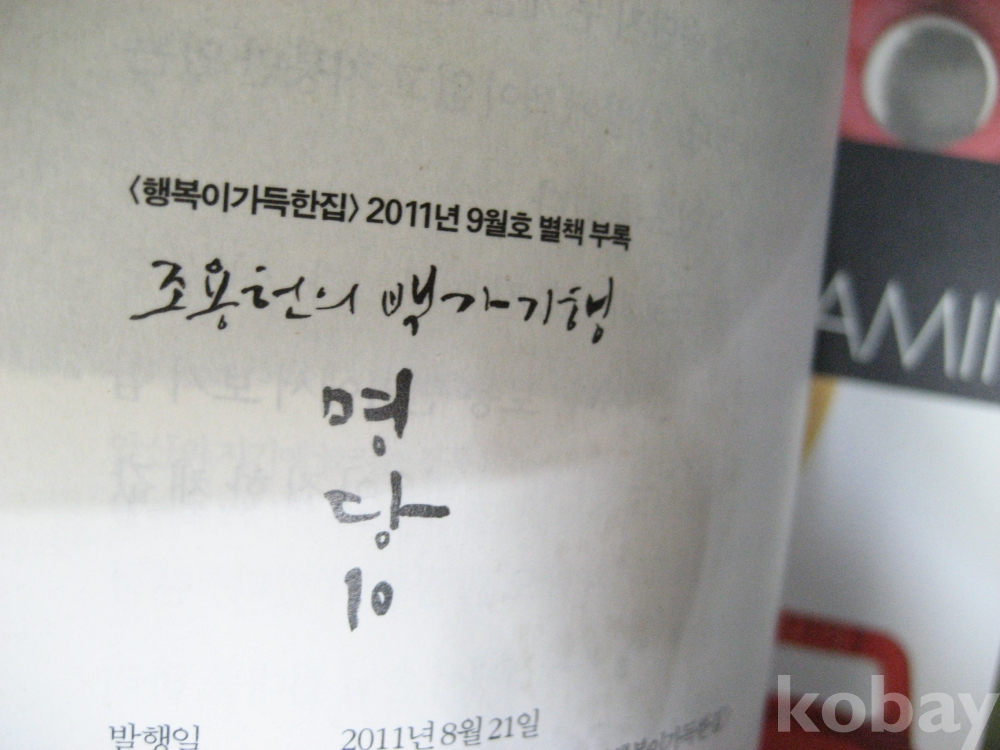 〈행복이가득한집〉 2011년 9월호 별책 부록
조용헌의 백가기행
명
당
10
발행일 2011년 8월 21일
AMI
kobay